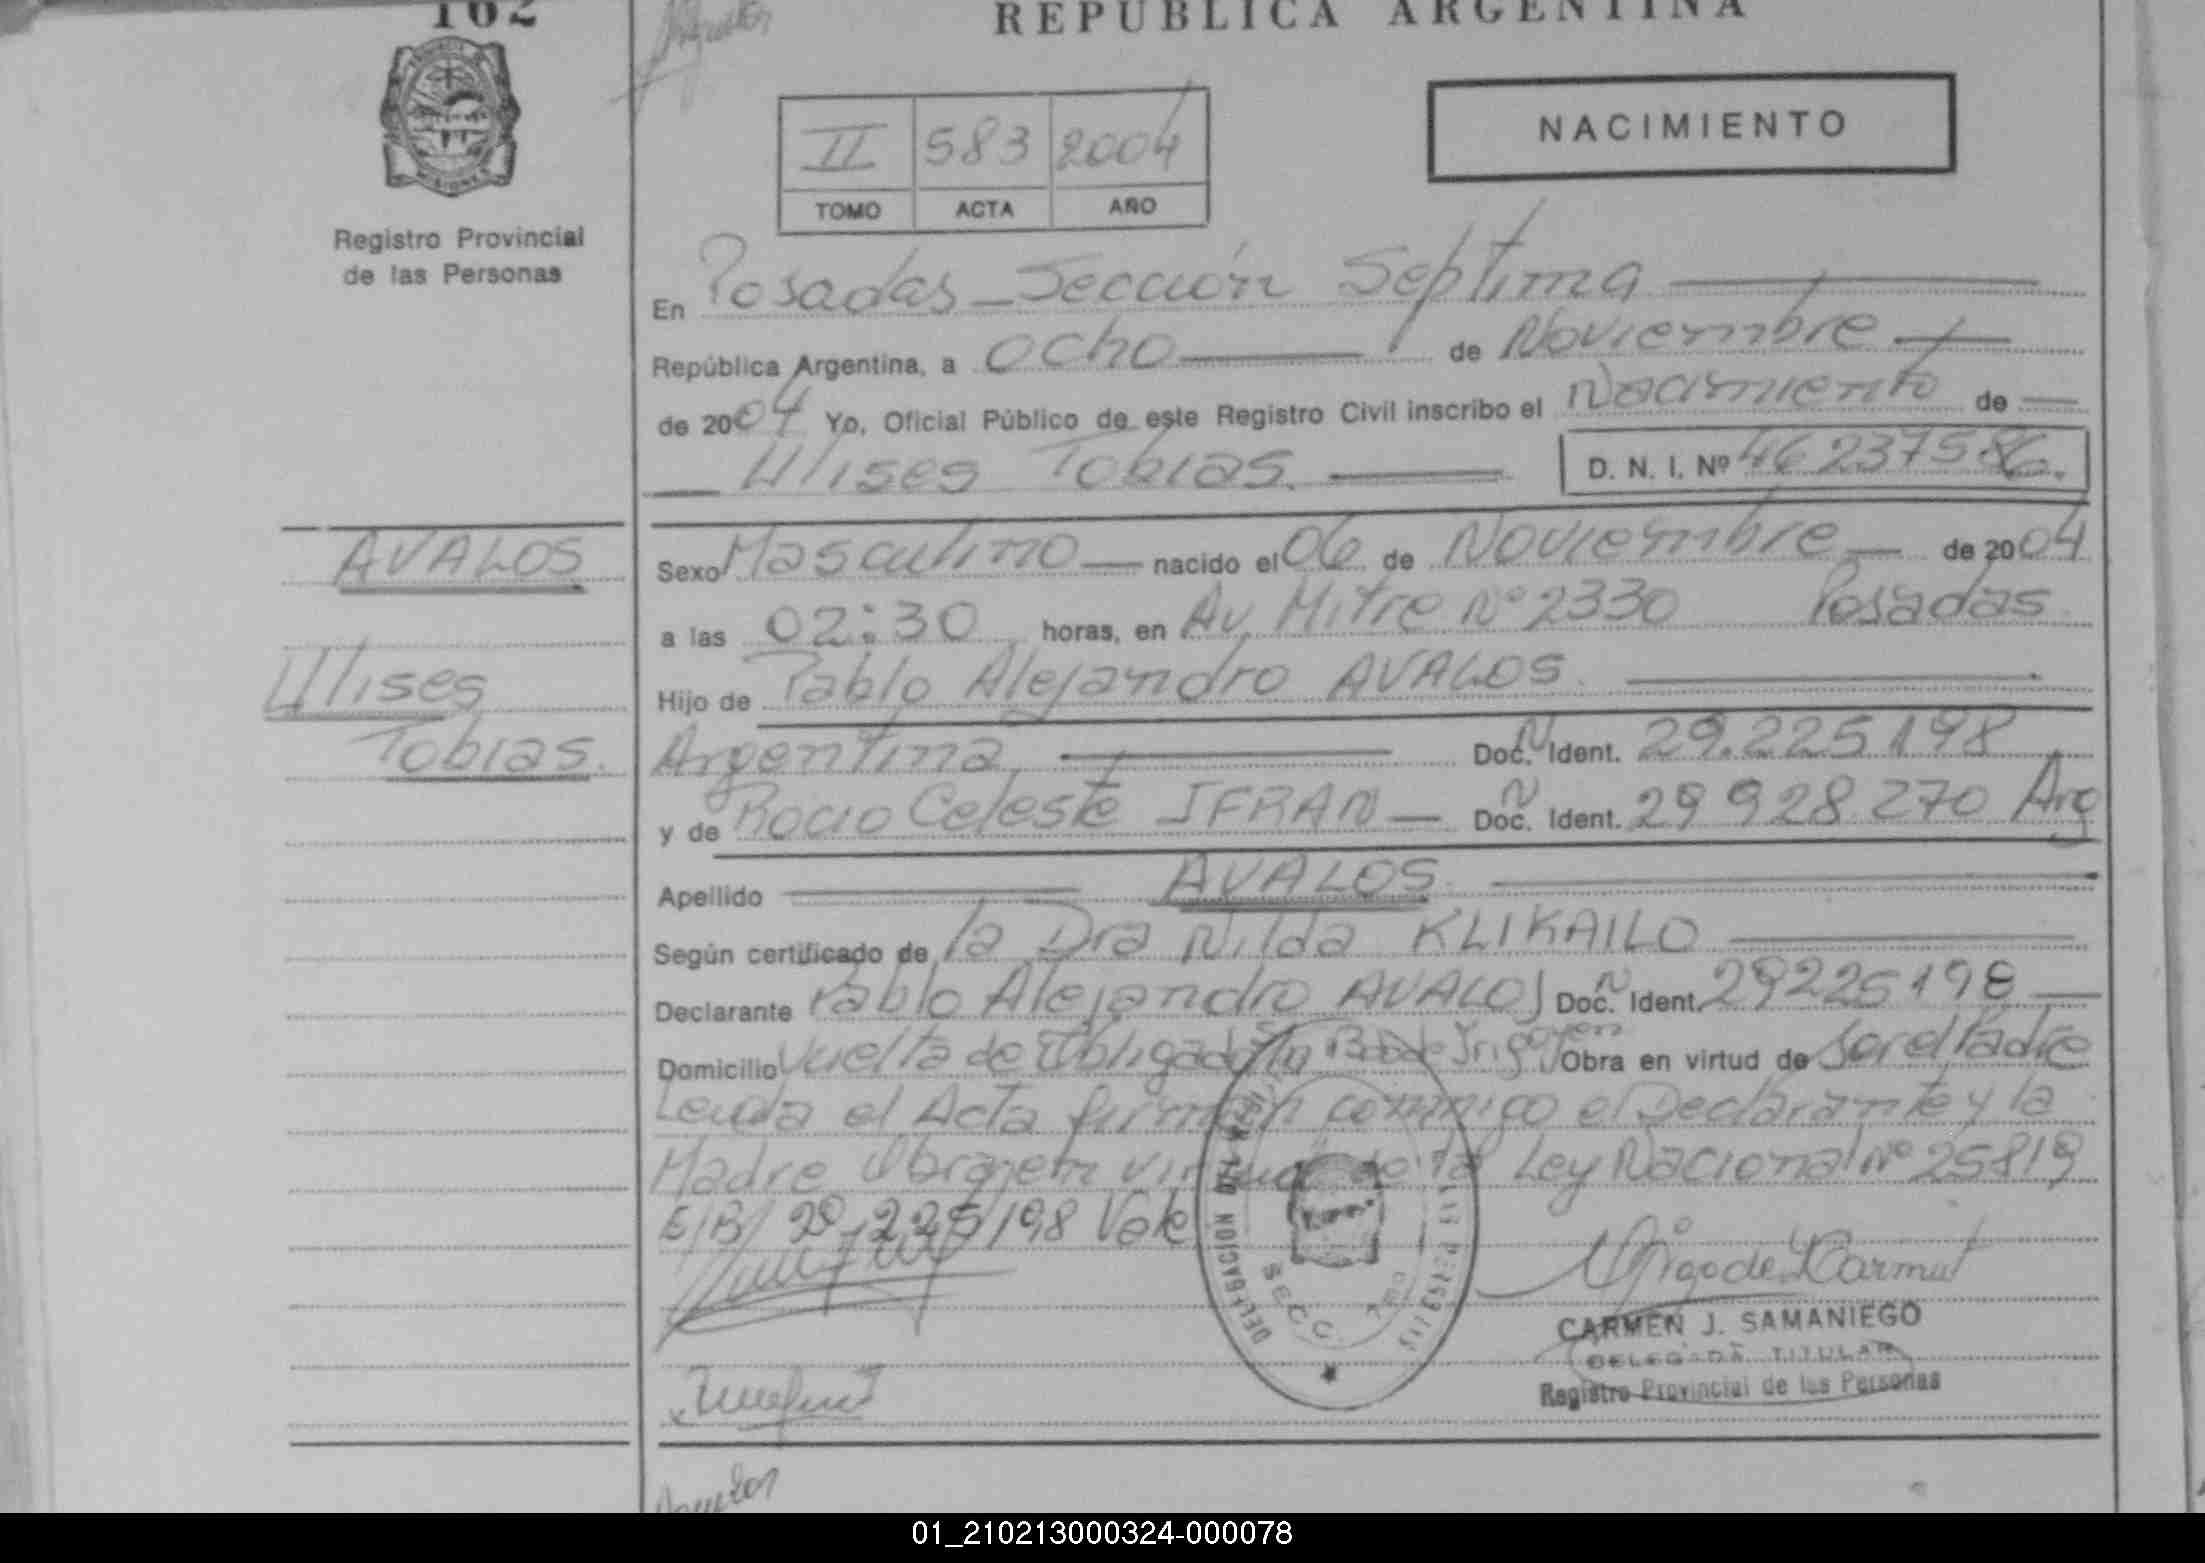 162
REPUBLICA ARGENTINA
MISIONES
Registro Provincial
de las Personas
NACIMIENTO
II 583 2004
TOMO ACTA AÑO
En Posadas - Sección Septima
República Argentina, a ocho de Noviembre
de 2004 Yo, Oficial Público de este Registro Civil inscribo el Nacimiento de
Ulises Tobias. D. N. I. Nº 46237586.
AVALOS
Ulises
Tobias.
Sexo Masculino nacido el 06 de Noviembre de 2004
a las 02:30 horas, en Av. Mitre Nº 2330 Posadas
Hijo de Pablo Alejandro AVALOS.
Argentina Doc. N Ident. 29.225198
y de Rocio Celeste IFRAN Doc. N Ident. 29 928.270 Arg
Apellido AVALOS
Según certificado de la Dra Nilda KLIKAILO
Declarante Pablo Alejandro AVALOS Doc. N Ident. 29225198
Domicilio Vuelta de Obligado Bdo de Irigoyen Obra en virtud de ser el Padre
Leida el Acta firman conmigo el Declarante y la
Madre Obra en virtud de la Ley Nacional Nº 25819
E/B/ 29.225198 Vale
DELEGACION
SECC. 7ma
CARMEN J. SAMANIEGO
DELEGADA TITULAR
Registro Provincial de las Personas
01_210213000324-000078